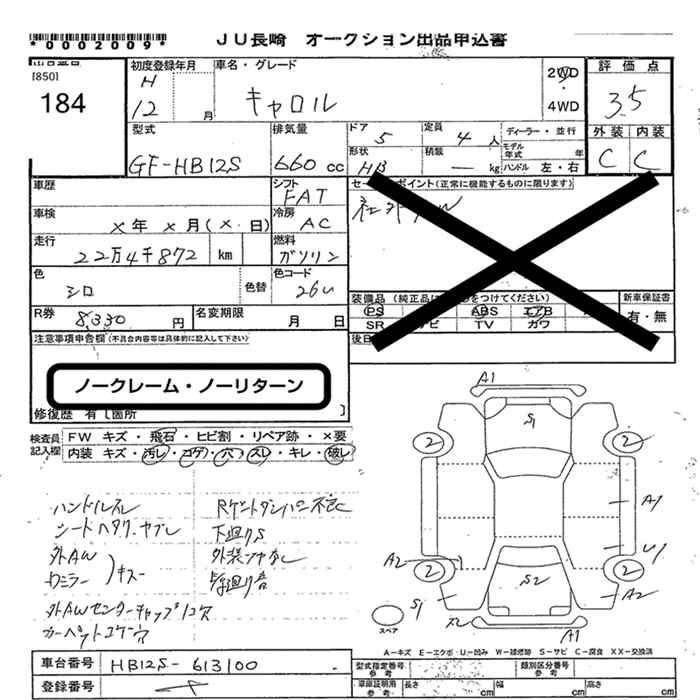 *0002009*
JU長崎 オークション出品申込書
[850]
184
初度登録年月
H
12 月
車名・グレード
キャロル
2WD
4WD
評価点
3.5
外装 内装
C C
型式
GF-HB12S
排気量
660 cc
ドア
5
定員
4 人
ディーラー・並行
形状
HB
積載
— kg
モデル年式 年
ハンドル 左・右
車歴
シフト
FAT
セールスポイント(正常に機能するものに限ります)
車検
×年 ×月(×.日)
冷房
AC
走行
22万4千872 km
燃料
ガソリン
色
シロ
色替
色コード
26U
装備品 (純正品は をつけてください)
新車保証書
有・無
PS ABS エアB
SR ナビ TV カワ
R券
8,330 円
名変期限
月 日
注意事項申告欄(不具合内容等は具体的に記入して下さい)
ノークレーム・ノーリターン
修復歴 有[箇所 ]
検査員記入欄
FW キズ・飛石・ヒビ割・リペア跡・×要
内装 キズ・汚レ・コゲ・穴・スレ・キレ・破レ
ハンドルスレ
シートヘタリ.ヤブレ
外AW
ミラー
キズ
外AWセンターキャップ1コ欠
カーペットコゲ穴
下廻りS
A1
S1
2 2
A1
U1
A2
2 2
S2
S1
A2
A1
スペア
A-キズ E-エクボ・U-凹み W-補修跡 S-サビ C-腐食 XX-交換済
車台番号
HB12S-613100
登録番号
型式指定番号 参考
類別区分番号 参考
車庫証明用 参考
長さ cm
幅 cm
高さ cm